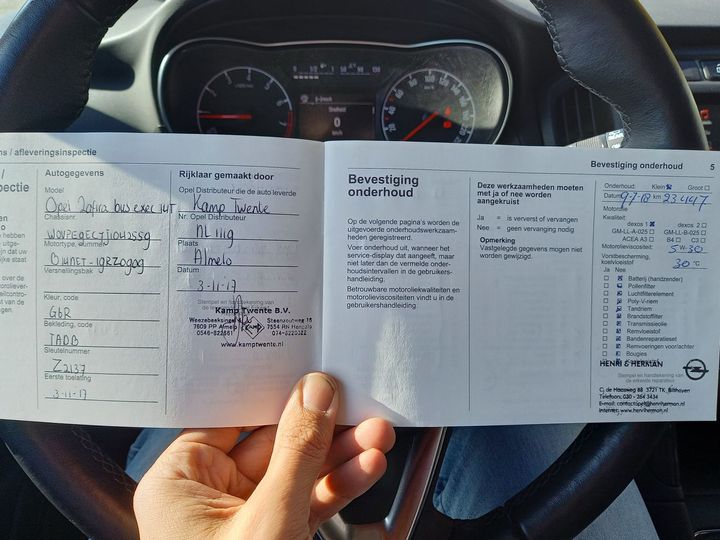 ns / afleveringsinspectie
pectie
Autogegevens
Model
Opel Zafira bus exec 1.4T
Chassisnr.
Motortype, nummer
Versnellingsbak
Kleur, code
GbR
Bekleding, code
TADB
Sleutelnummer
Z2137
Eerste toelating
3-11-17
Rijklaar gemaakt door
Opel Distributeur die de auto leverde
Kamp Twente
Nr. Opel Distributeur
NL 1119
Plaats
Almelo
Datum
3-11-17
Kamp Twente B.V.
7609 PP Almelo
0546-822661
Steenzoutweg 16
7554 RN Hengelo
074-8220322
www.kamptwente.nl
Bevestiging
onderhoud
Op de volgende pagina's worden de
uitgevoerde onderhoudswerkzaam-
heden geregistreerd.
Voer onderhoud uit, wanneer het
service-display dat aangeeft, maar
niet later dan de vermelde onder-
houdsintervallen in de gebruikers-
handleiding.
Betrouwbare motoroliekwaliteiten en
motorolieviscositeiten vindt u in de
gebruikershandleiding.
Bevestiging onderhoud 5
Deze werkzaamheden moeten
met ja of nee worden
aangekruist
Ja = is ververst of vervangen
Nee = geen vervanging nodig
Opmerking
Vastgelegde gegevens mogen niet
worden gewijzigd.
Onderhoud: Klein Groot
Datum 9-7-18 km 23447
Motorolie
Kwaliteit
dexos 1 dexos 2
GM-LL-A-025 GM-LL-B-025
ACEA A3 B4 C3
Motorolieviscositeit: 5W-30
Vorstbescherming,
koelvloeistof 30 °C
Ja Nee
Batterij (handzender)
Pollenfilter
Luchtfilterelement
Poly-V-riem
Tandriem
Brandstoffilter
Transmissieolie
Remvloeistof
Bandenreparatieset
Remvoeringen voor/achter
Bougies
HENRI & HERMAN
Stempel en handtekening van
de erkende reparateur
C. de Haasweg 88 3721 TK Bilthoven
Telefoon: 030 - 264 3434
Internet: www.henriherman.nl